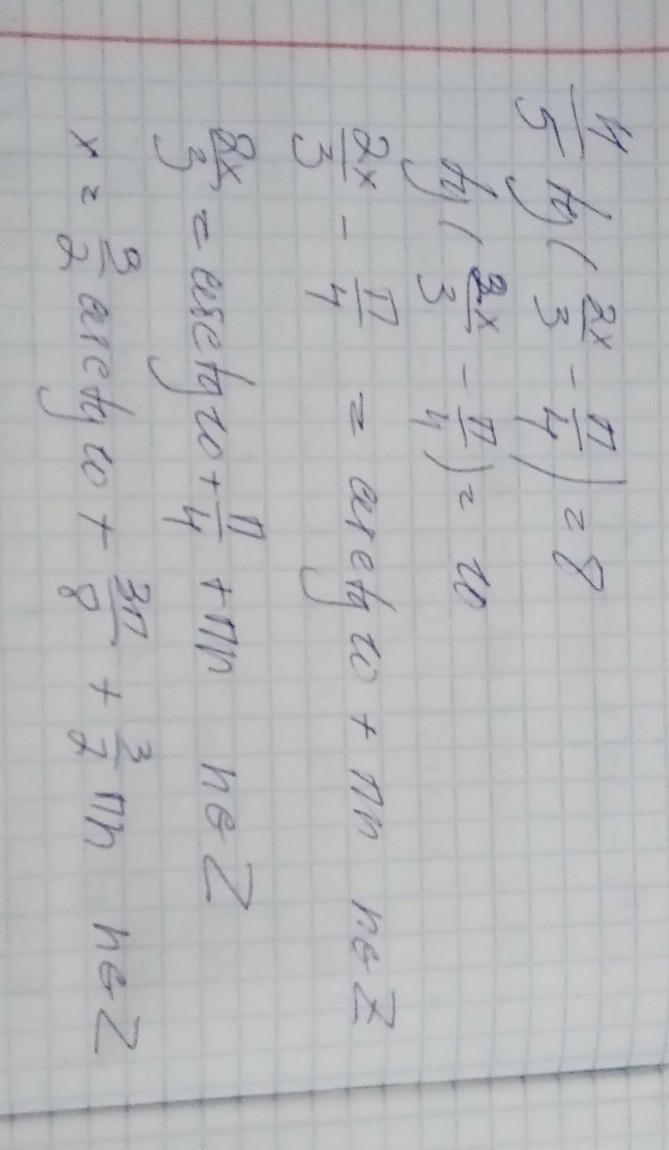 4/5 tg(2x/3 - π/4) = 8
tg(2x/3 - π/4) = 10
2x/3 - π/4 = arctg 10 + πn n∈Z
2x/3 = arctg 10 + π/4 + πn n∈Z
x = 3/2 arctg 10 + 3π/8 + 3/2 πn n∈Z